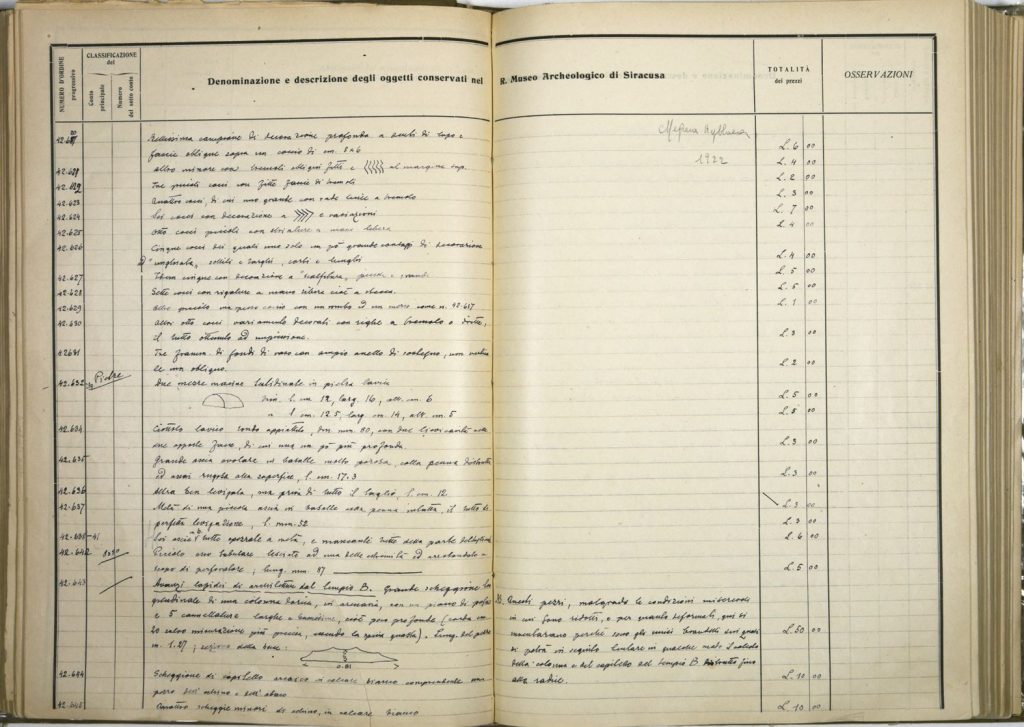 NUMERO D'ORDINE progressivo
CLASSIFICAZIONE del
Conto principale
Numero del sotto conto
Denominazione e descrizione degli oggetti conservati nel R. Museo Archeologico di Siracusa
TOTALITÀ dei prezzi
OSSERVAZIONI
Megara Hyblaea
1922
Bellissimo campione di decorazione profonda a denti di lupo e
fascie oblique sopra un coccio di cm. 8x6 L. 6 00
42.628 altro minore con tremoli obliqui fitti e al margine sup. L. 4 00
Tre piccoli cocci con fitte fascie di tremoli L. 2 00
42.623 Quattro cocci, di cui uno grande con rade linee a tremolo L. 3 00
42.624 Sei cocci con decorazione a e variazioni L. 7 00
42.625 Otto cocci piccoli con striature a mano libera L. 4 00
42.626 Cinque cocci dei quali uno solo un pò grande con tappi di decorazione
ad unghiata, sottili e larghi, corti e lunghi L. 4 00
42.627 cinque con decorazione a "scalfittura, L. 5 00
42.628 Sette cocci con rigature a mano libera cioè a stecca. L. 5 00
42.629 Altro piccolo ma spesso coccio con un rombo ed un mezzo come n. 42.617 L. 1 00
42.630 Altri otto cocci variamente decorati con righe a tremolo o diritte,
il tutto ottenuto ad impressione. L. 3 00
42631 Tre framm. di fondi di vaso con ampio anello di sostegno, non vertica
le ma obliquo. L. 2 00
42.632 Pietre Due mezze macine subsidinale in pietra lavica
dim. l. cm 12, larg. 16, alt. cm. 6 L. 5 00
" l. cm. 12.5, larg. cm. 14, alt. cm. 5 L. 5 00
42.634 Ciottolo lavico tondo appiattito, dm mm. 80, con due lievi cavità nelle
due opposte facce, di cui una un pò più profonda. L. 3 00
42.635 Grande ascia ovolare in basalto molto poroso, colla penna distrutta
ed assai rugosa alla superficie, l. cm. 17.3 L. 3 00
42.636 Altra ben levigata, ma priva di tutto il taglio, l. cm. 12 L. 3 00
42.637 Metà di una piccola ascia in basalto con penna intatta, il tutto di
perfetta levigazione, l. mm. 52 L. 3 00
42.638-41 Sei ascie tutte spezzate a metà, e mancanti tutte della parte del taglio L. 6 00
42.642 Piccolo osso tubulare lesinato ad una delle estremità ed arrotondato a
scopo di perforatore; lung. mm. 87 L. 5 00
42.643 Avanzi lapidei di architettura dal tempio B. Grande scheggione lon
gitudinale di una colonna dorica, in arenaria, con un piano di posa
e 5 cannellature larghe e cioè poco profonde (corda cm.
20 salvo misurazione più precisa, essendo la spina guasta). Lung. del pezzo
m. 1.27; sezione della base: 0.81
N.B. Questi pezzi, malgrado le condizioni miserevoli
in cui sono ridotti, e per quanto deformati, qui si
inventariano perchè sono gli unici brandelli dai quali
si potrà in seguito tentare in qualche modo il calcolo L. 50 00
della colonna e del capitello del tempio B distrutto fino
alla radice.
42.644 Scheggione di capitello arcaico in calcare bianco comprendente un
pezzo dell'echino e dell'abaco L. 10 00
42.645 Quattro scheggie minori di echino, in calcare bianco L. 10 00